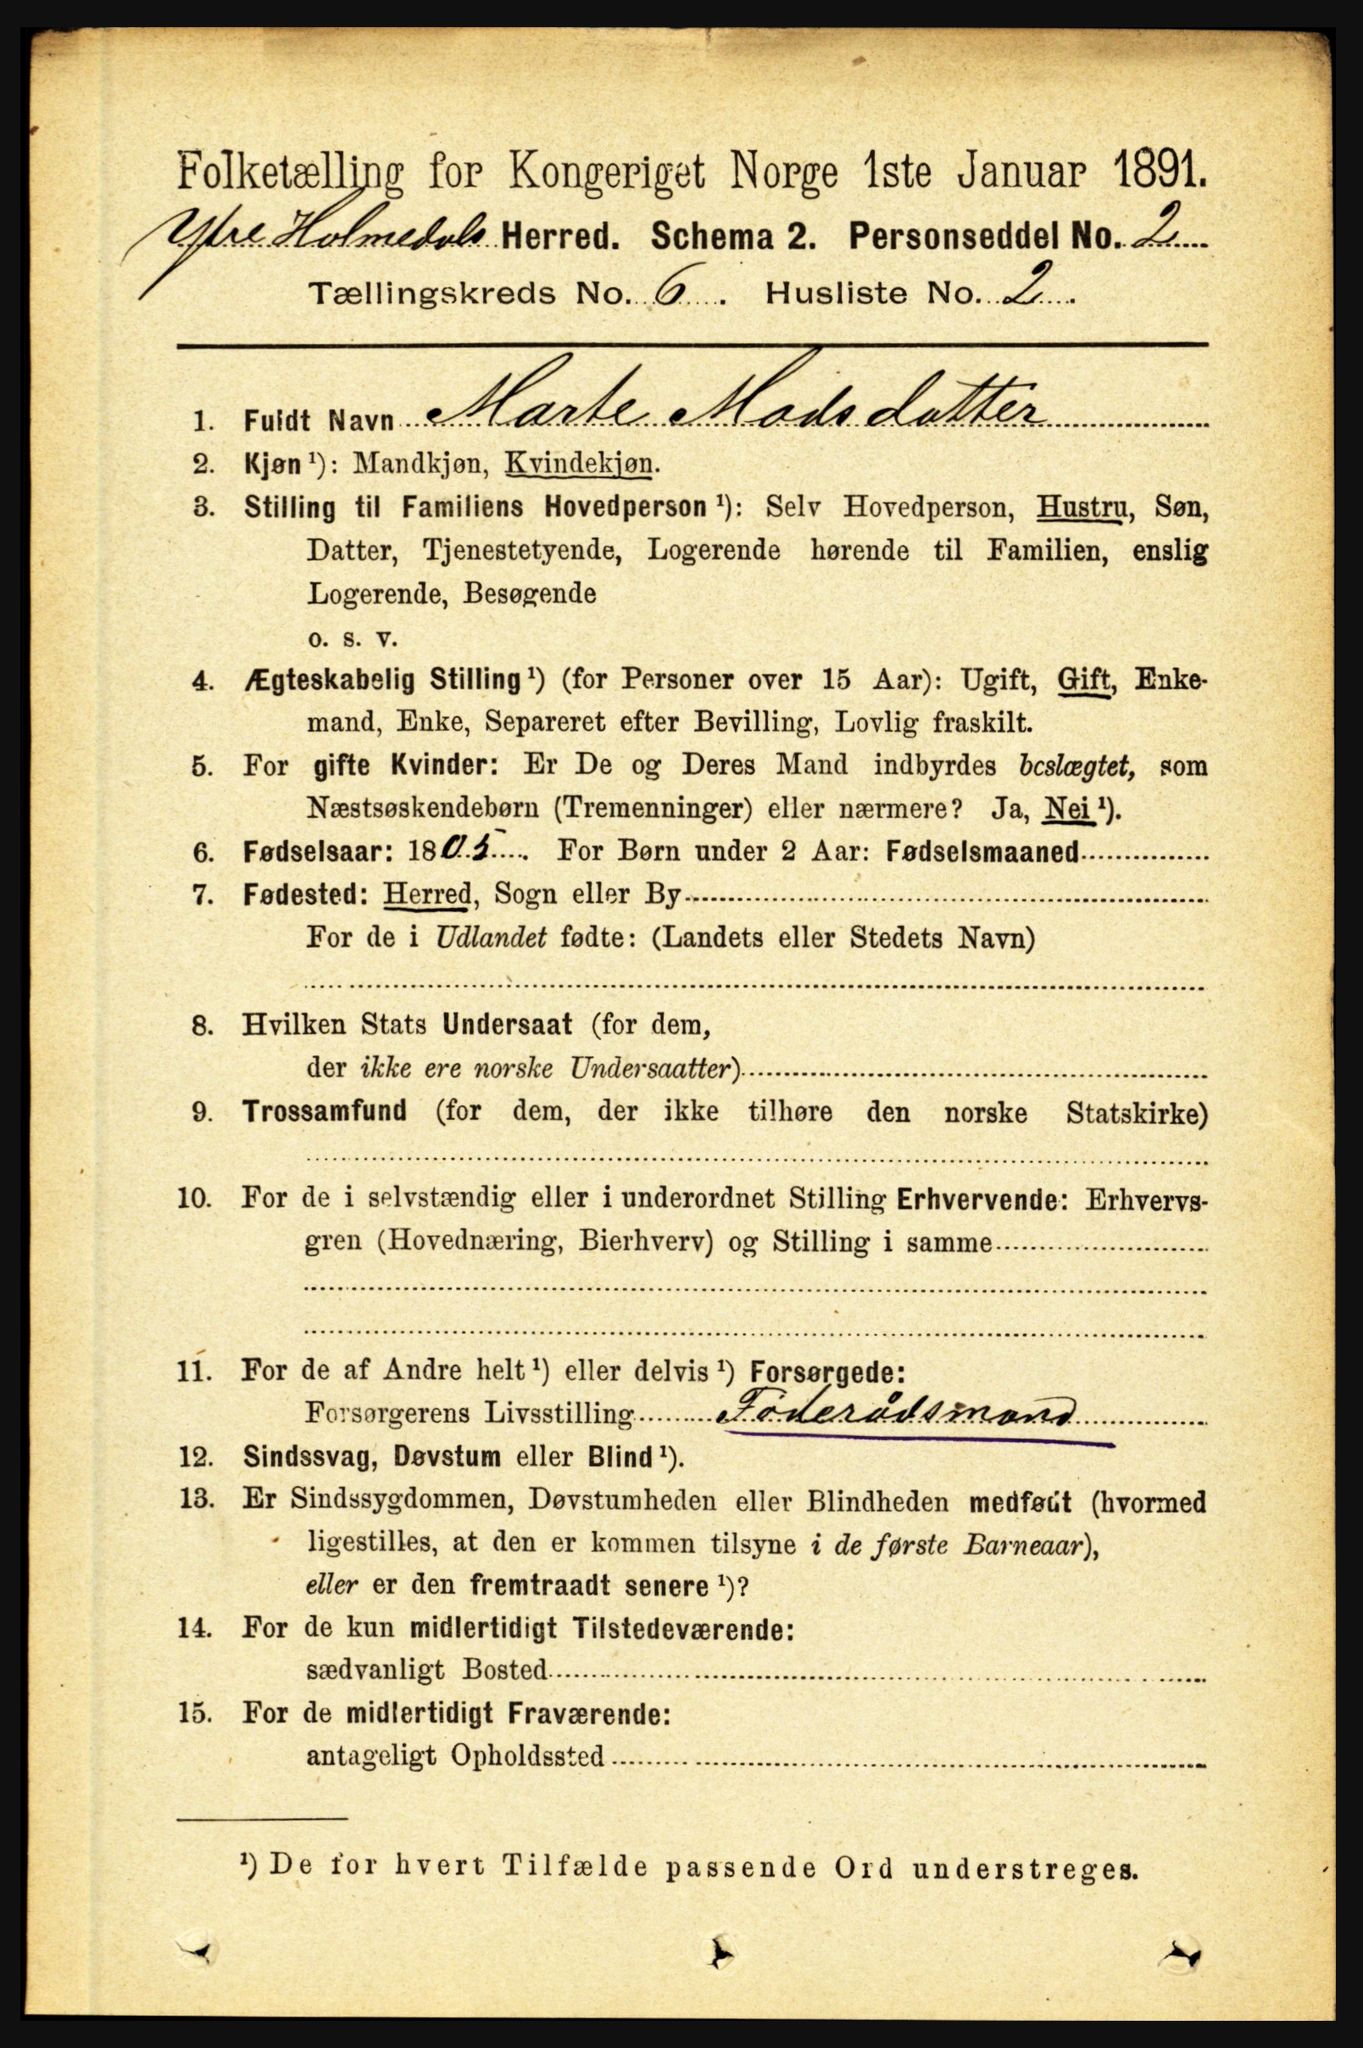 Folketælling for Kongeriget Norge 1ste Januar 1891.
Ytre Holmedals Herred. Schema 2. Personseddel No. 2
Tællingskreds No. 6. Husliste No. 2.
1. Fuldt Navn Marte Madsdatter
2. Kjøn ¹): Mandkjøn, Kvindekjøn.
3. Stilling til Familiens Hovedperson ¹): Selv Hovedperson, Hustru, Søn,
Datter, Tjenestetyende, Logerende hørende til Familien, enslig
Logerende, Besøgende
o. s. v.
4. Ægteskabelig Stilling ¹) (for Personer over 15 Aar): Ugift, Gift, Enke-
mand, Enke, Separeret efter Bevilling, Lovlig fraskilt.
5. For gifte Kvinder: Er De og Deres Mand indbyrdes beslægtet, som
Næstsøskendebørn (Tremenninger) eller nærmere? Ja, Nei ¹).
6. Fødselsaar: 1805. For Børn under 2 Aar: Fødselsmaaned
7. Fødested: Herred, Sogn eller By
For de i Udlandet fødte: (Landets eller Stedets Navn)
8. Hvilken Stats Undersaat (for dem,
der ikke ere norske Undersaatter)
9. Trossamfund (for dem, der ikke tilhøre den norske Statskirke)
10. For de i selvstændig eller i underordnet Stilling Erhvervende: Erhvervs-
gren (Hovednæring, Bierhverv) og Stilling i samme
11. For de af Andre helt ¹) eller delvis ¹) Forsørgede:
Forsørgerens Livsstilling Føderådsmand
12. Sindssvag, Døvstum eller Blind ¹).
13. Er Sindssygdommen, Døvstumheden eller Blindheden medfødt (hvormed
ligestilles, at den er kommen tilsyne i de første Barneaar),
eller er den fremtraadt senere ¹)?
14. For de kun midlertidigt Tilstedeværende:
sædvanligt Bosted
15. For de midlertidigt Fraværende:
antageligt Opholdssted
¹) De for hvert Tilfælde passende Ord understreges.